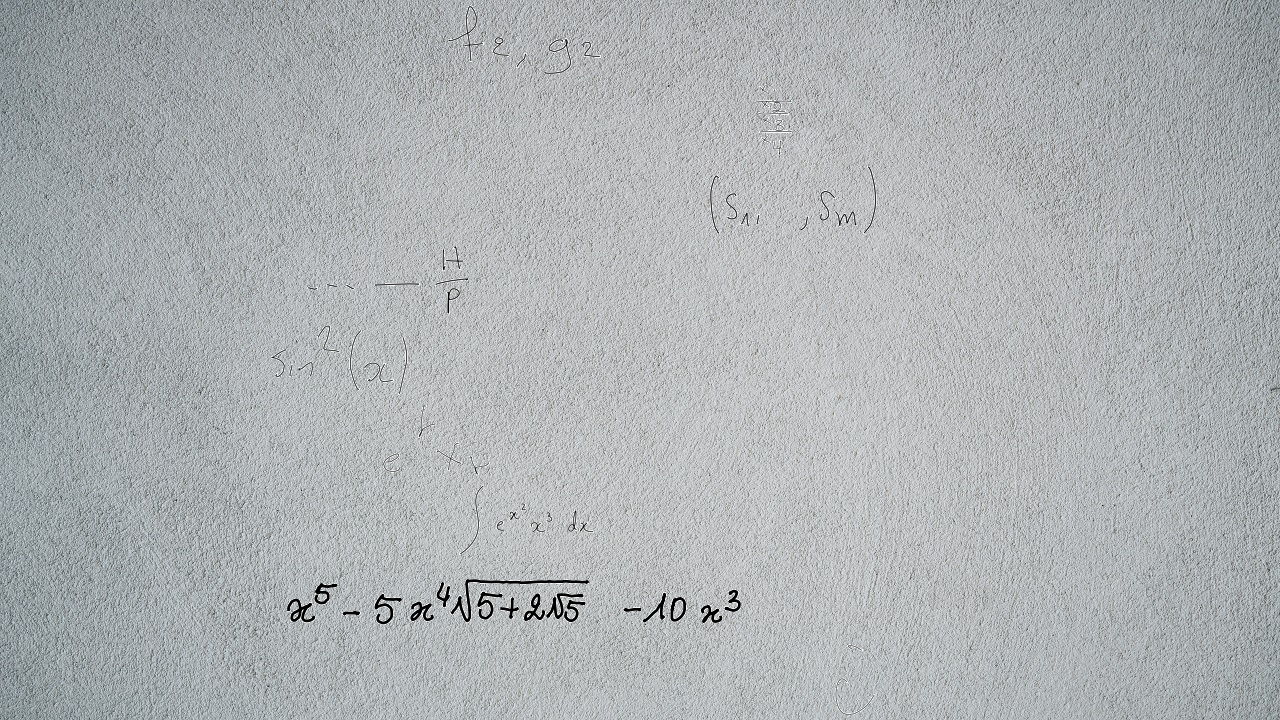 f2, g2
2
3
4
(S1, , Sm)
... — H/P
sin²(x)
∫ e^{x²} x³ dx
x⁵ - 5x⁴√(5+2√5) -10x³